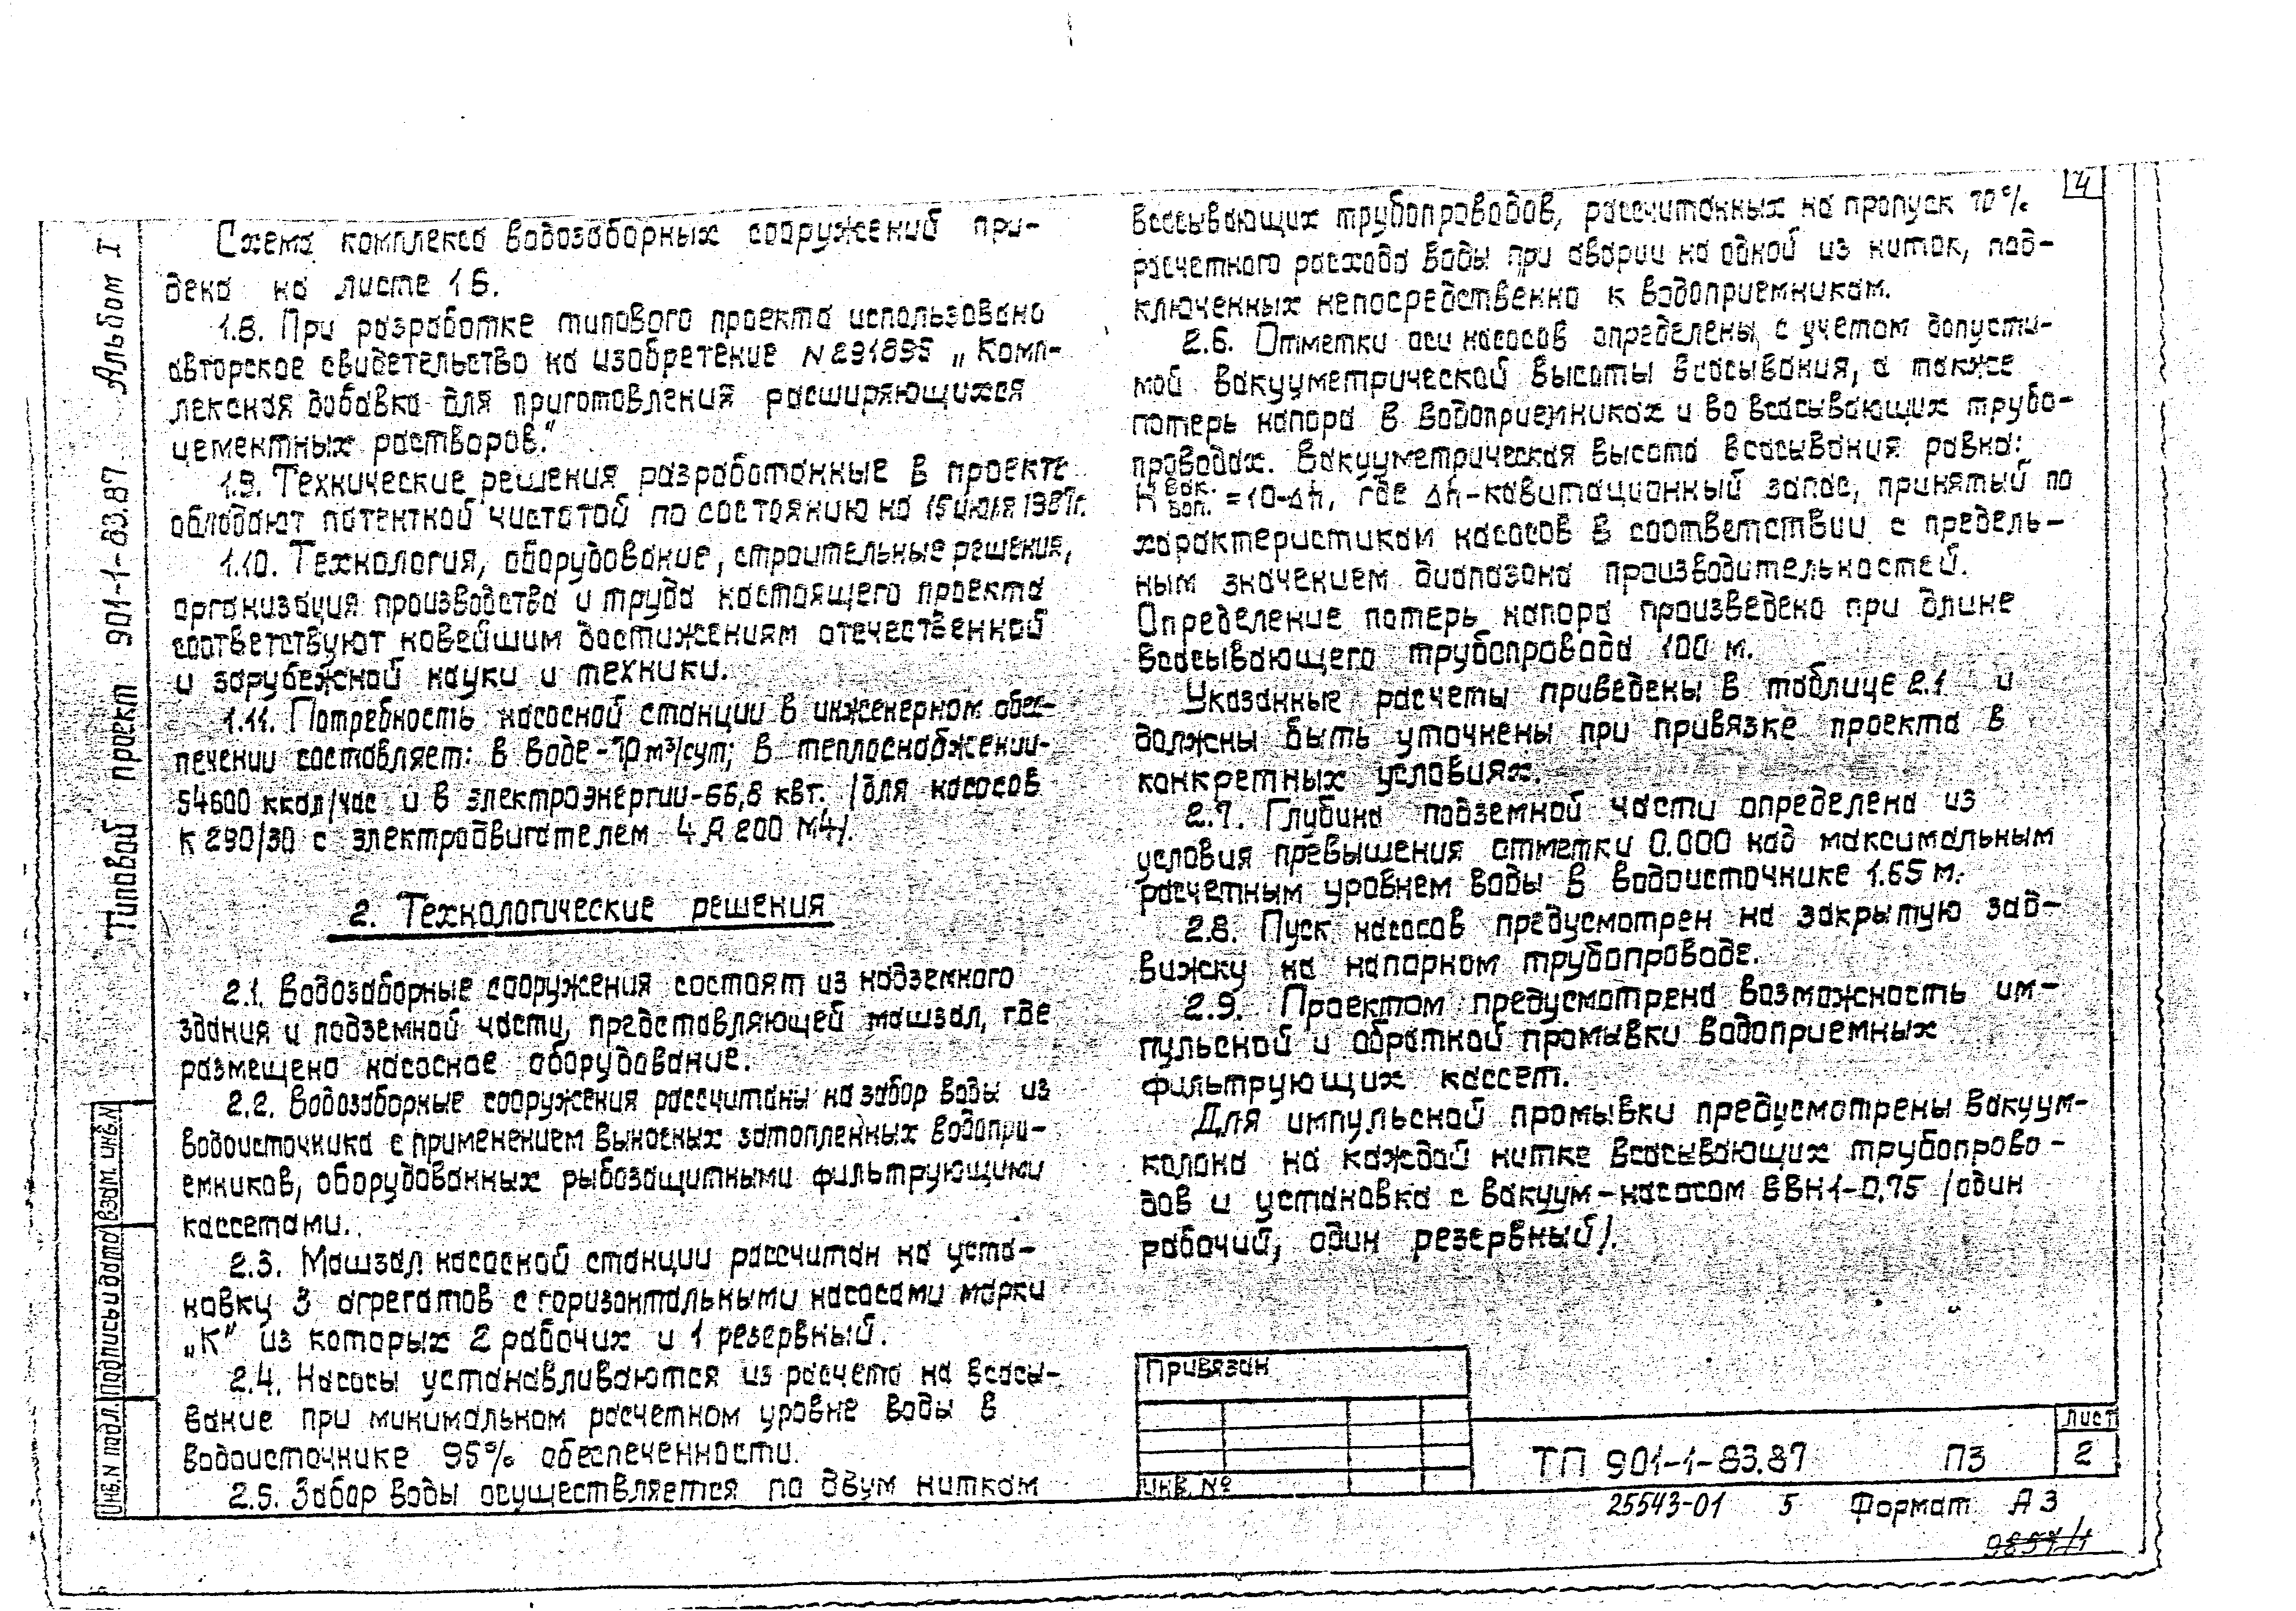 4
Типовой проект 901-1-83.87 Альбом I
Схема комплекса водозаборных сооружений при-
дена на листе 16.
1.8. При разработке типового проекта использовано
авторское свидетельство на изобретение N291895 „Комп-
лексная добавка для приготовления расширяющихся
цементных растворов."
1.9. Технические решения разработанные в проекте
обладают патентной чистотой по состоянию на 15 июля 1987г.
1.10. Технология, оборудование, строительные решения,
организация производства и труда настоящего проекта
соответствуют новейшим достижениям отечественной
и зарубежной науки и техники.
1.11. Потребность насосной станции в инженерном обес-
печении составляет: в воде-10 м³/сут; в теплоснабжении-
54600 ккал/час и в электроэнергии-66,8 квт. /для насосов
К 290/30 с электродвигателем 4 А 200 М4/.
2. Технологические решения
2.1. Водозаборные сооружения состоят из надземного
здания и подземной части, представляющей машзал, где
размещено насосное оборудование.
2.2. Водозаборные сооружения рассчитаны на забор воды из
водоисточника с применением выносных затопленных водопри-
емников, оборудованных рыбозащитными фильтрующими
кассетами.
2.3. Машзал насосной станции рассчитан на уста-
новку 3 агрегатов с горизонтальными насосами марки
„К" из которых 2 рабочих и 1 резервный.
2.4. Насосы устанавливаются из расчета на всасы-
вание при минимальном расчетном уровне воды в
водоисточнике 95% обеспеченности.
2.5. Забор воды осуществляется по двум ниткам
всасывающих трубопроводов, рассчитанных на пропуск 70%
расчетного расхода воды при аварии на одной из ниток, под-
ключенных непосредственно к водоприемникам.
2.6. Отметки оси насосов определены с учетом допусти-
мой вакууметрической высоты всасывания, а также
потерь напора в водоприемниках и во всасывающих трубо-
проводах. Вакууметрическая высота всасывания равна:
H вак. доп. =10-Δh, где Δh-кавитационный запас, принятый по
характеристикам насосов в соответствии с предель-
ным значением диапазона производительностей.
Определение потерь напора произведено при длине
всасывающего трубопровода 100 м.
Указанные расчеты приведены в таблице 2.1 и
должны быть уточнены при привязке проекта в
конкретных условиях.
2.7. Глубина подземной части определена из
условия превышения отметки 0.000 над максимальным
расчетным уровнем воды в водоисточнике 1.65 м.
2.8. Пуск насосов предусмотрен на закрытую зад-
вижку на напорном трубопроводе.
2.9. Проектом предусмотрена возможность им-
пульсной и обратной промывки водоприемных
фильтрующих кассет.
Для импульсной промывки предусмотрены вакуум-
колона на каждой нитке всасывающих трубопрово-
дов и установка с вакуум-насосом ВВН1-0,75 /один
рабочий, один резервный/.
Инв.N подл. Подпись и дата Взам. инв.N
Привязан
Инв. №
ТП 901-1-83.87 ПЗ
Лист
2
25543-01 5 Формат А3
9857/1